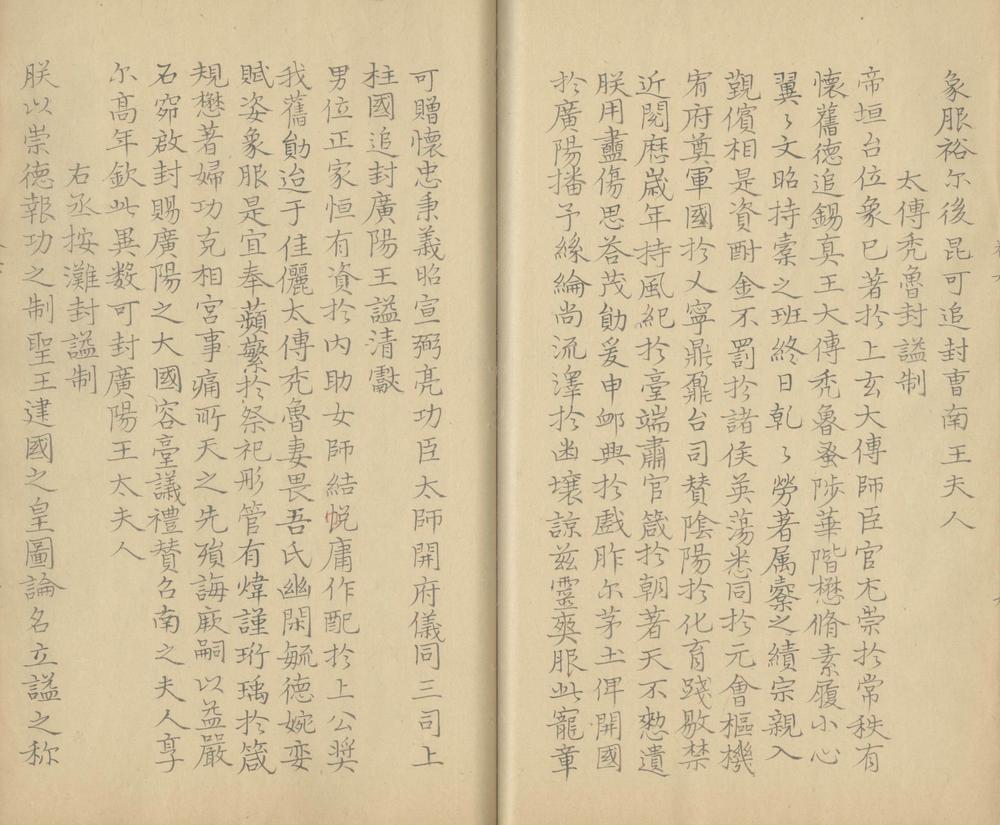 象服裕尔後昆可追封曺南王夫人
太傅秃魯封謚制
帝垣台位象已著於上玄大傅師臣官尤崇於常秩有
懐舊德追錫真王大傅秃魯蚤陟華階懋脩素履小心
翼〻文昭持橐之班終日乹〻勞著属寮之績宗親入
觐儐相是資酎金不罰於諸侯英蕩悉同於元會樞機
宥府奠軍國於乂寧鼎鼐台司賛隂陽於化育踐敭禁
近閱歴嵗年持風紀於臺端肅官箴於朝著天不憗遺
朕用衋傷思荅茂勛爰申卹典於戲胙尔茅土俾開國
於廣陽播予絲綸尚流澤於幽壌諒兹靈爽服此寵章
可贈懐忠秉義昭宣弼亮功臣太師開府儀同三司上
柱國追封廣陽王謚清獻
男位正家恒有資於内助女師結帨庸作配於上公奨
我舊勛迨于佳儷太傅秃魯妻畏吾氏幽閑毓德婉娈
賦姿象服是宜奉蘋蘩於祭祀彤管有煒謹珩瑀於箴
規懋著婦功克相宮事痛所天之先殞誨厥嗣以益嚴
石窌啟封賜廣陽之大國容臺議禮賛召南之夫人享
尔髙年欽此異数可封廣陽王太夫人
右丞按灘封謚制
朕以崇德報功之制聖王建國之皇圖論名立謚之称